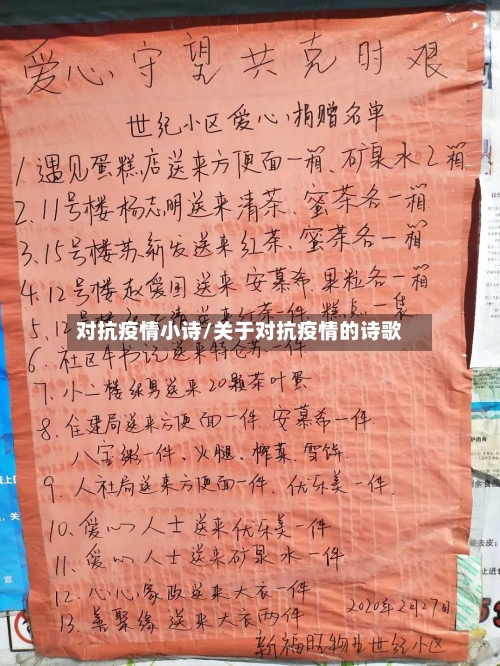 爱心守望共克时艰
世纪小区爱心捐赠名单
1. 遇见蛋糕店送来方便面一箱、矿泉水2箱
2. 11号楼杨志明送来清茶、蜜茶各一箱
3. 15号楼苏新发送来红茶、蜜茶各一箱
4. 12号楼赵爱国送来安慕希、果粒各一箱
5. 12号楼 送来红茶一件 糕点一袋
对抗疫情小诗/关于对抗疫情的诗歌
6. 社区牛书记送来特仑苏一件
7. 小二楼 男送来20颗茶叶蛋
8. 住建局送来方便面一件 安慕希一件
八宝粥一件、火腿、榨菜、雪饼
9. 人社局送来方便面一件、优乐美一件
10. 爱心人士送来优乐美一件
11. 爱心人士送来矿泉水一件
12. 心心家政送来大衣一件
13. 善聚缘送来大衣两件
2020年2月27日
新福旺物业世纪小区